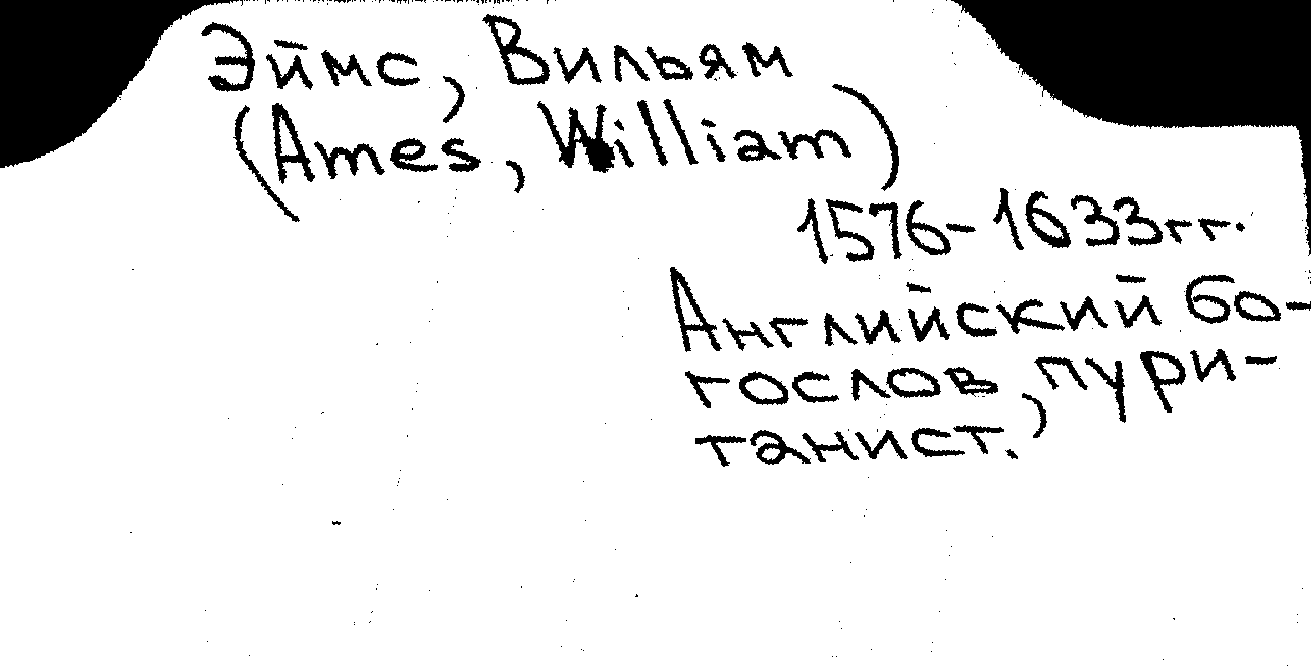 Эймс, Вильям
(Ames, William)
1576-1633гг.
Английский бо-
гослов, пури-
танист.